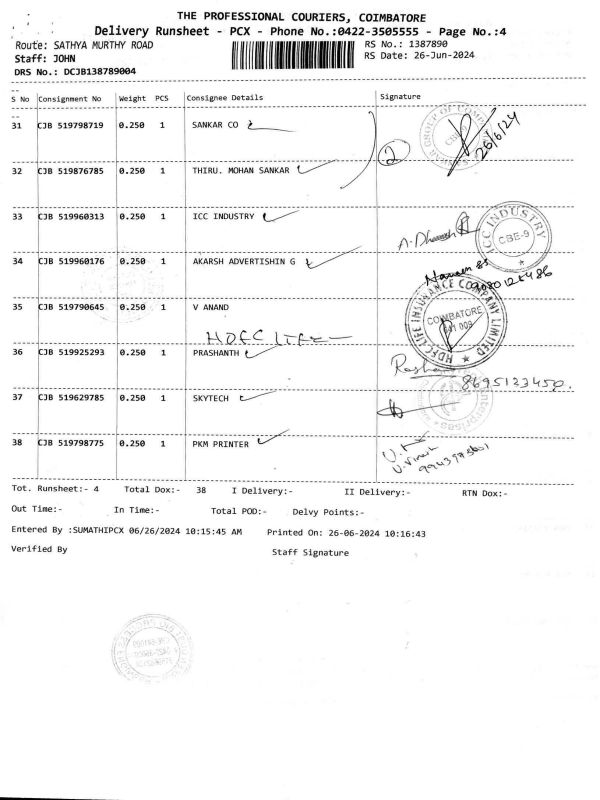 THE PROFESSIONAL COURIERS, COIMBATORE
Delivery Runsheet - PCX - Phone No.:0422-3505555 - Page No.:4
Route: SATHYA MURTHY ROAD RS No.: 1387890
Staff: JOHN RS Date: 26-Jun-2024
DRS No.: DCJB138789004
S No Consignment No Weight PCS Consignee Details Signature
31 CJB 519798719 0.250 1 SANKAR CO
2 26/6/24
32 CJB 519876785 0.250 1 THIRU. MOHAN SANKAR
33 CJB 519960313 0.250 1 ICC INDUSTRY
ICC INDUSTRY CBE-9
34 CJB 519960176 0.250 1 AKARSH ADVERTISHIN G
35 CJB 519790645 0.250 1 V ANAND
HDFC LIFE
HDFC LIFE INSURANCE COMPANY LIMITED COIMBATORE 641 009
36 CJB 519925293 0.250 1 PRASHANTH
8695133450.
37 CJB 519629785 0.250 1 SKYTECH
38 CJB 519798775 0.250 1 PKM PRINTER
Tot. Runsheet:- 4 Total Dox:- 38 I Delivery:- II Delivery:- RTN Dox:-
Out Time:- In Time:- Total POD:- Delvy Points:-
Entered By :SUMATHIPCX 06/26/2024 10:15:45 AM Printed On: 26-06-2024 10:16:43
Verified By Staff Signature